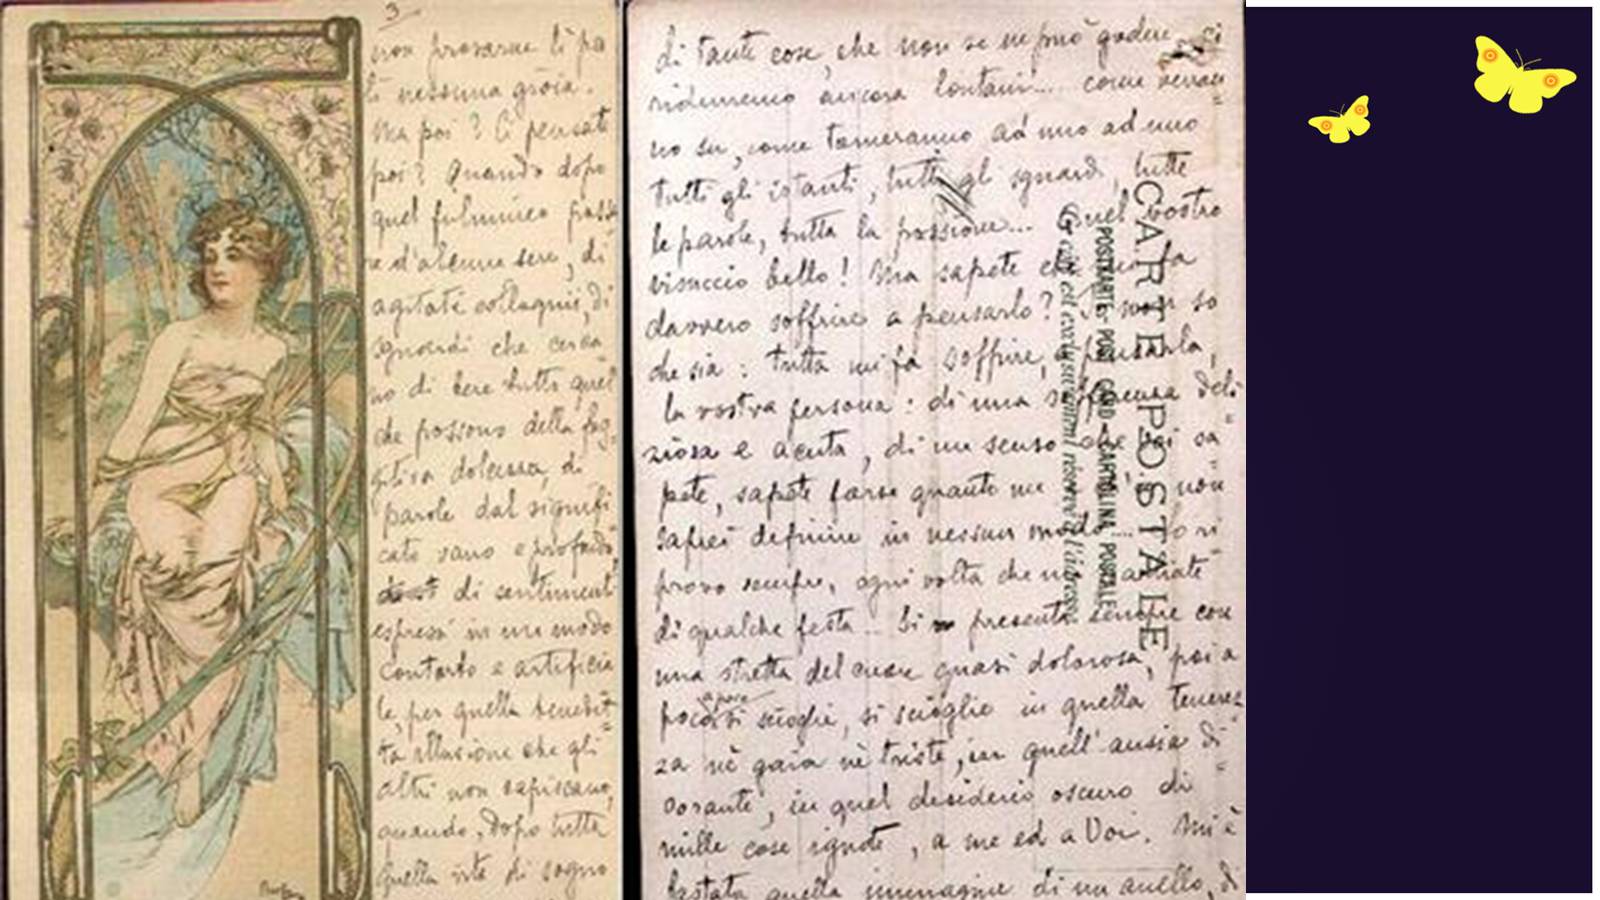 3
non provarne li pa
li nessuna gioia.
Ma poi? Ci pensate
poi? Quando dopo
quel fulmineo
d'alcune sere, di
agitati colloquii, di
sguardi che cerca
no di bere tutto quel
che possono della fug
gitiva dolcezza, di
parole dal signifi
cato vano e profondo
di sentimenti
espressi in un modo
contorto e artificia
le, per quella benedet
ta illusione che gli
altri non capiscano,
quando, dopo tutta
quella vita di sogno
di tante cose, che non se ne può godere, ci
rideremo ancora lontani.... come verran
no su, come torneranno ad uno ad uno
tutti gli istanti, tutti gli sguardi, tutte
le parole, tutta la passione... Quel vostro
visuccio bello! Ma sapete che mi fa
davvero soffrire a pensarlo? Io non so
che sia: tutta mi fa soffrire, pensarla,
la vostra persona: di una sofferenza deli
ziosa e acuta, di un senso che voi sa
pete, sapete forse quanto me e non
saprei definire in nessun modo... Io ri
provo sempre, ogni volta che
di qualche festa... Si presenta sempre con
una stretta del cuore quasi dolorosa, poi a
poco a poco si scioglie, si scioglie in quella tenerez
za nè gaia nè triste, in quell'ansia di
vorante, in quel desiderio oscuro di
mille cose ignote, a me ed a Voi. Mi è
bastata quella immagine di un anello, di
CARTE POSTALE
POST CARD - CARTOLINA POSTALE
Ce côté est exclusivement réservé à l'adresse